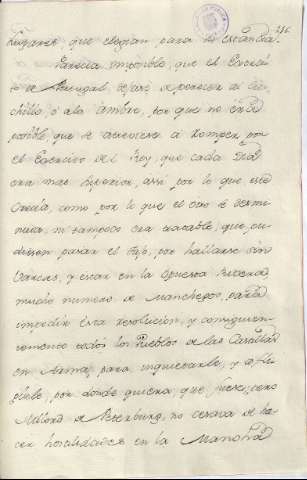 Lugares, que elegian para la
Parecia imposible, que el Exerci-
to de Portugal dejase de perecer al cu-
chillo, ó ala ambre, por que no era
posible que se atreviese a romper por
el Exercito del Rey, que cada dia
era mas superior, assi por lo que este
crecia, como por lo que el otro se
ni tampoco era que pu-
diesen pasar el Tajo, por hallarse sin
Varcas, y estar en la opuesta Rivera
mucho numero de Manchegos, para
impedir esta resolucion, y
todos los Pueblos de las Castillas
en Arma, para inquietarle, y
por donde quiera que fuese, pero
Milord de Peterburg, no cesava de ha-
cer hostilidades en la Mancha